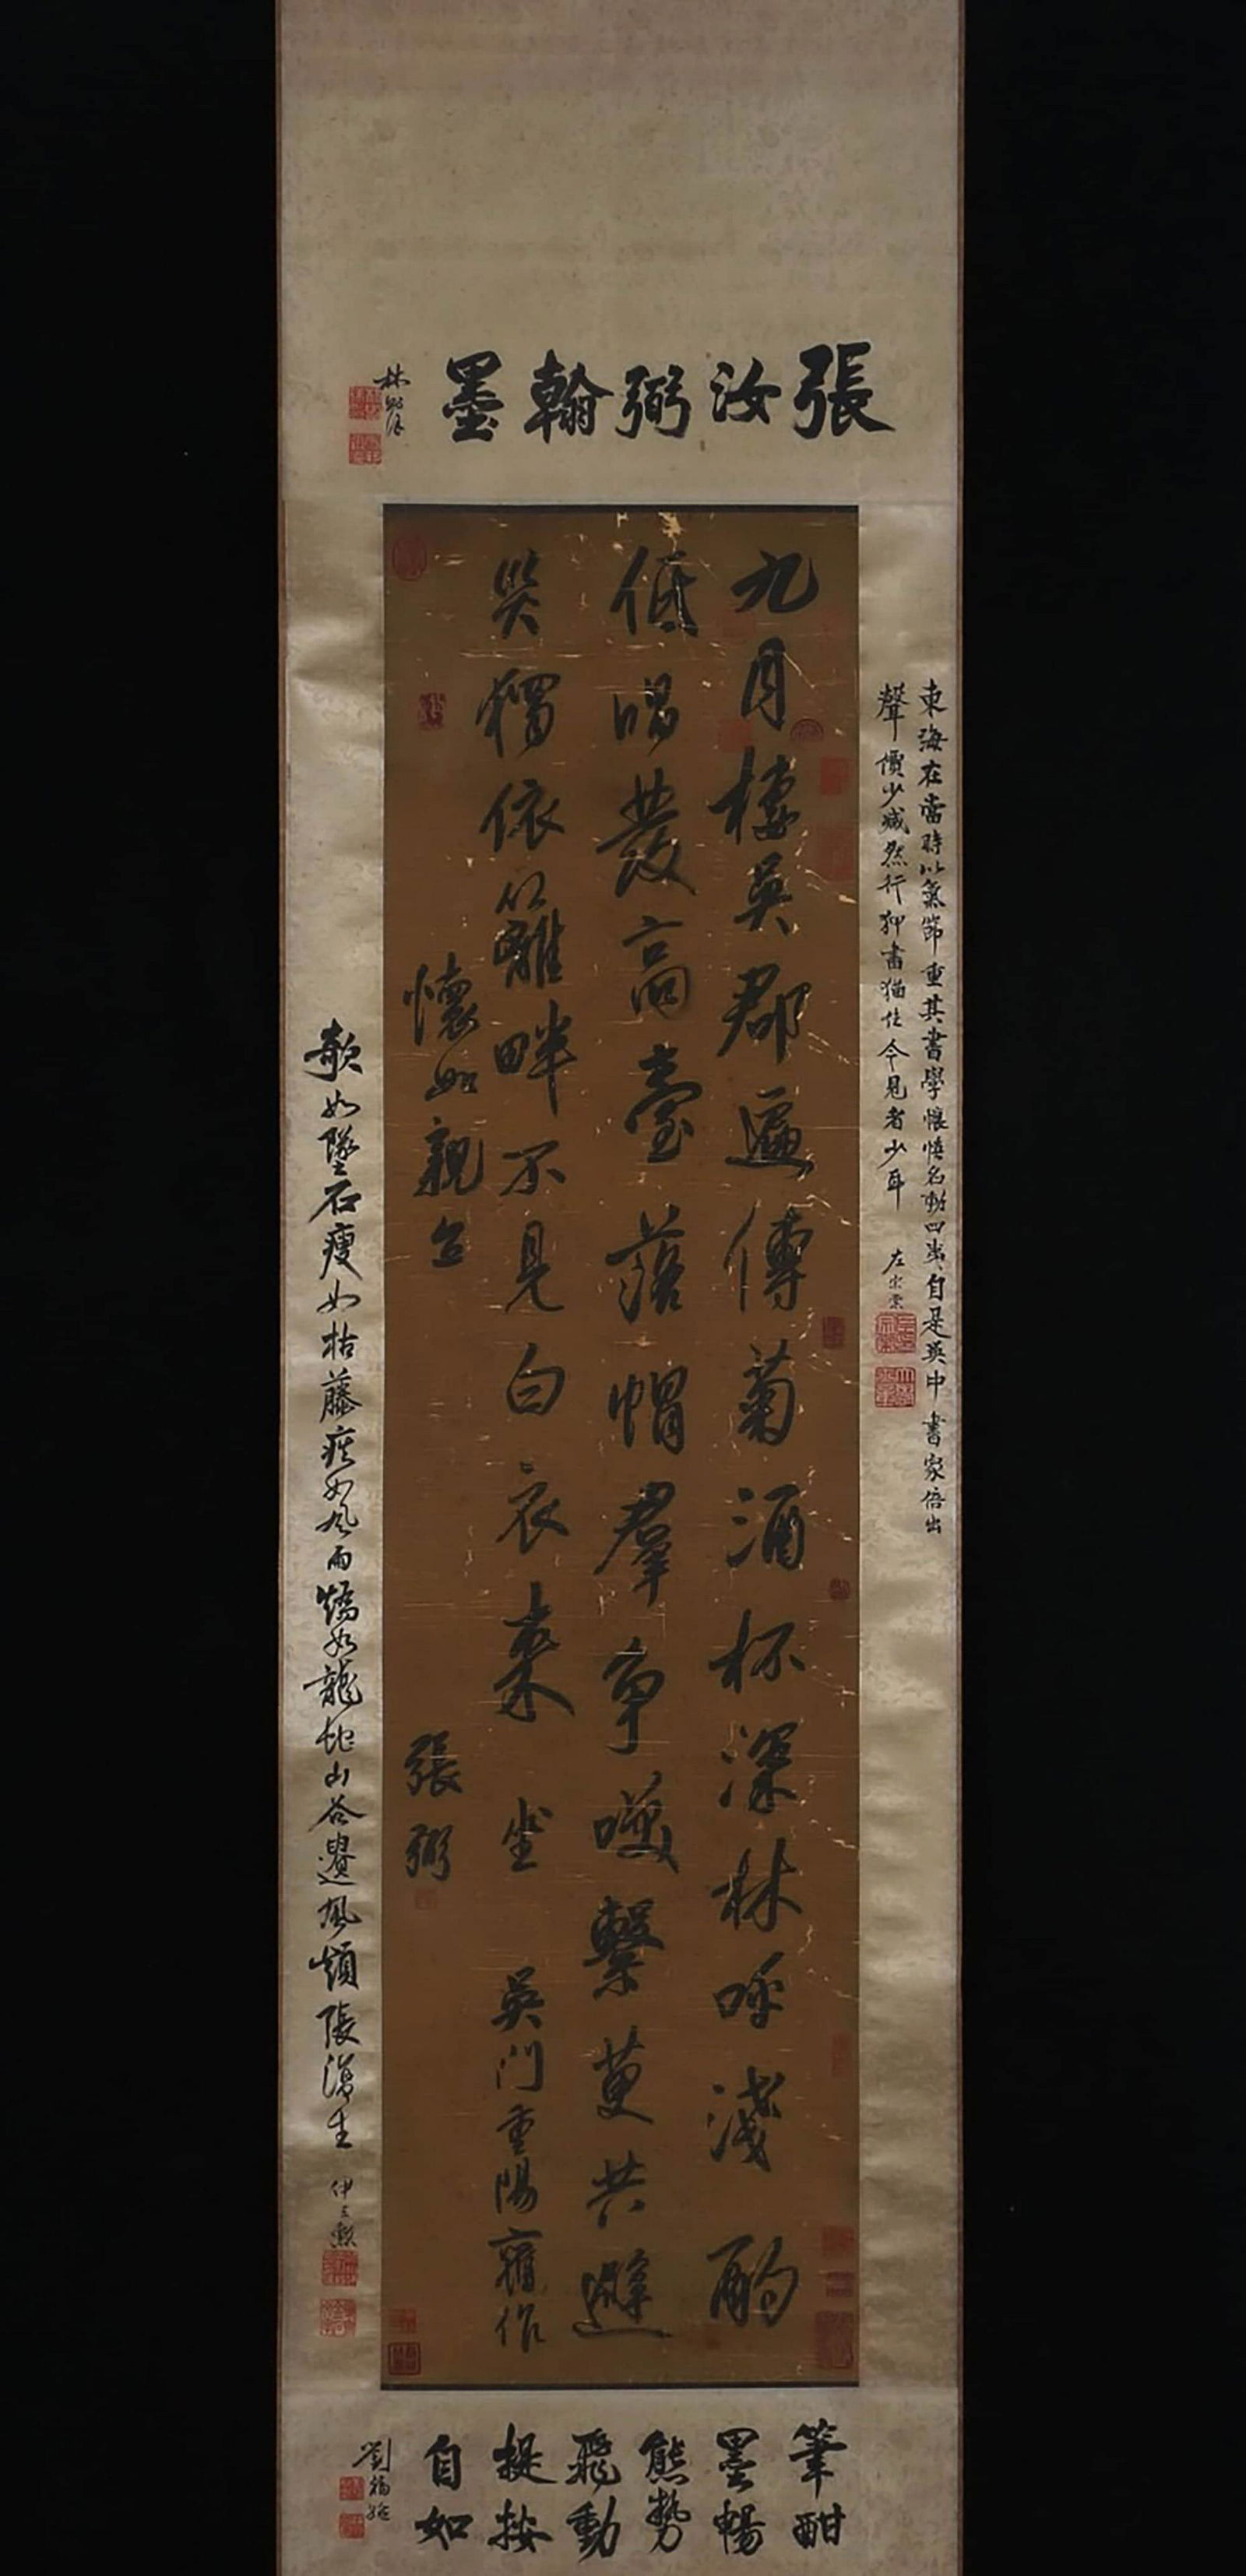 張汝弼翰墨
林則徐
東海在當時以氣節重其書學懷慎名動四夷自是吳中書家倍出
聲價少減然行押書猶佳今見者少耳
左宗棠
九月棲吳郡遍傳菊酒杯深林呼淺酌
低唱發高臺落帽羣爭嘆繫萸共避
災獨依公籬畔不見白衣來坐
吳門重陽雜作
懷如親台
張弼
欹如墜石瘦如枯藤疾如風雨矯如龍蛇山谷遺風顛張後生
伊立勲
筆酣
墨暢
態勢
飛動
提按
自如
劉福姚